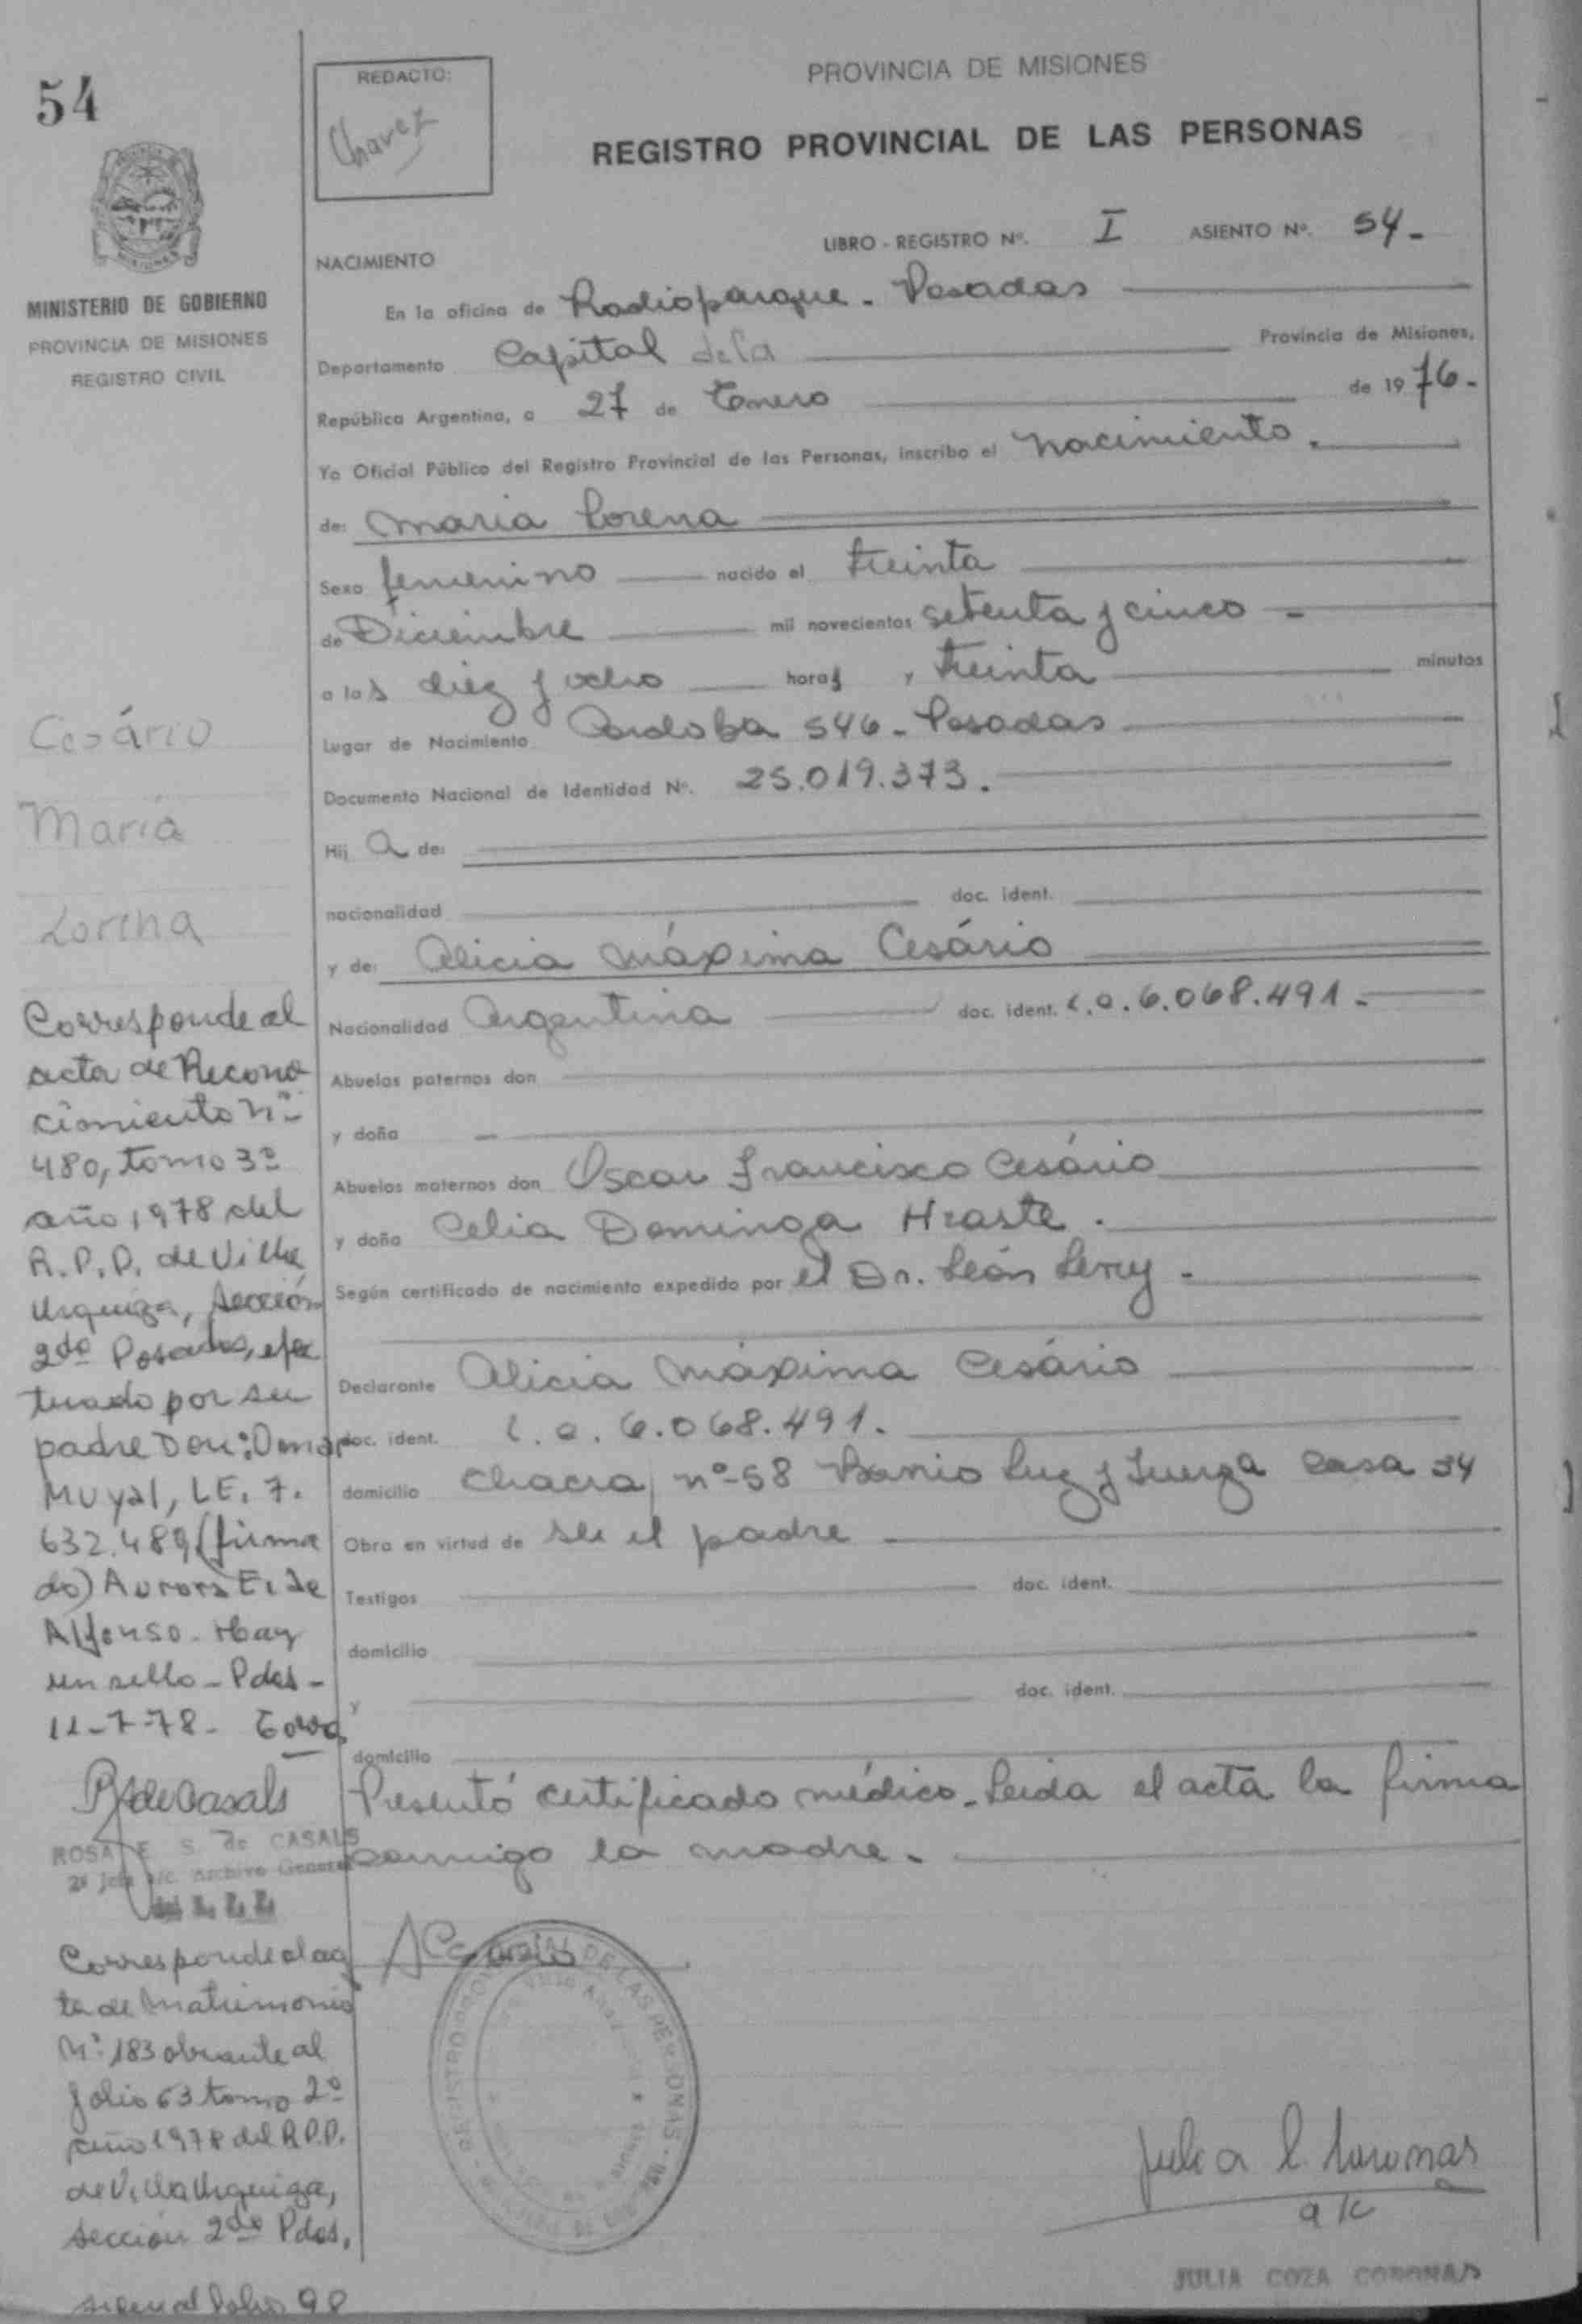 54
MINISTERIO DE GOBIERNO
PROVINCIA DE MISIONES
REGISTRO CIVIL
REDACTO:
Chavez
PROVINCIA DE MISIONES
REGISTRO PROVINCIAL DE LAS PERSONAS
LIBRO - REGISTRO Nº. I ASIENTO Nº. 54-
NACIMIENTO
En la oficina de Radioparque - Posadas
Departamento Capital de la Provincia de Misiones,
República Argentina, a 27 de Enero de 1976-
Yo Oficial Público del Registro Provincial de las Personas, inscribo el nacimiento.
de: Maria Lorena
Sexo femenino nacido el treinta
de Diciembre mil novecientos setenta y cinco -
a las diez y ocho horas y treinta minutos
Lugar de Nacimiento Cordoba 546 - Posadas
Documento Nacional de Identidad Nº. 25.019.373.
Hij a de:
nacionalidad doc. ident.
y de: Alicia Máxima Cesário
Nacionalidad Argentina doc. ident. L.C. 6.068.491-
Abuelos paternos don
y doña
Abuelos maternos don Oscar Francisco Cesário
y doña Celia Dominga Hraste.
Según certificado de nacimiento expedido por el Dr. León
Declarante Alicia Máxima Cesário
doc. ident. L.C. 6.068.491.
domicilio Chacra nº 58 Barrio Luz y Fuerza Casa 34
Obra en virtud de ser el padre
Testigos doc. ident.
domicilio
y doc. ident.
domicilio
Presentó certificado médico. Leida el acta la firma
conmigo la madre.
ACesario
Julia C. Coronas
a/c
JULIA COZA CORONAS
Cesário
María
Lorena
Corresponde al
acta de Recono
cimiento Nº
480, tomo 3º
año 1978 del
R.P.P. de Villa
Urquiza, Sección
2da Posadas, efec
tuado por su
padre Don: Omar
Muyal, LE. 7.
632.489 (firma
do) Aurora E. de
Alfonso. Hay
un sello - Pdas -
11-7-78-
R de Casals
ROSA E. S. de CASALS
2ª Jefa a/c. Archivo General
Corresponde al ac
ta de Matrimonio
Nº 183 obrante al
folio 63 tomo 2º
año 1978 del R.P.P.
de Villa Urquiza,
sección 2da Pdas,
al folio 98